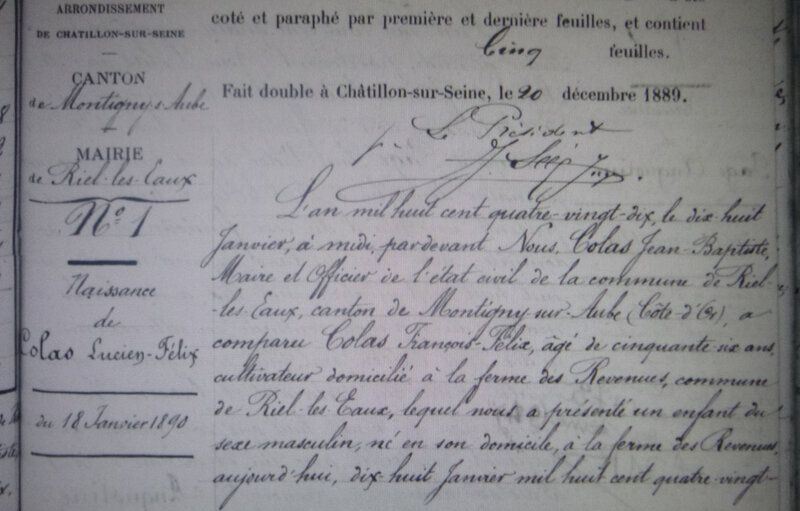 ARRONDISSEMENT
DE CHATILLON-SUR-SEINE
CANTON
de Montigny-s-Aube
MAIRIE
de Riel-les-Eaux
N° 1
Naissance
de
Colas Lucien-Félix
du 18 Janvier 1890
coté et paraphé par première et dernière feuilles, et contient
Cinq feuilles.
Fait double à Châtillon-sur-Seine, le 20 décembre 1889.
Le Président
L'an mil huit cent quatre-vingt-dix, le dix huit
Janvier, à midi, pardevant Nous, Colas Jean-Baptiste,
Maire et Officier de l'état civil de la commune de Riel-
-les-Eaux, canton de Montigny-sur-Aube (Côte-d'Or), a
comparu Colas François-Félix, âgé de cinquante six ans,
cultivateur domicilié à la ferme des Revenues, commune
de Riel-les-Eaux, lequel nous a présenté un enfant du
sexe masculin, né en son domicile, à la ferme des Revenues,
aujourd'hui, dix-huit Janvier mil huit cent quatre-vingt-